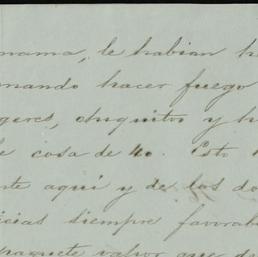 mama, le habian h
mando hacer fuego
geres, chiquitos y h
e cosa de 40. Esto
te aqui y de los do
icias siempre favorab
valor que d